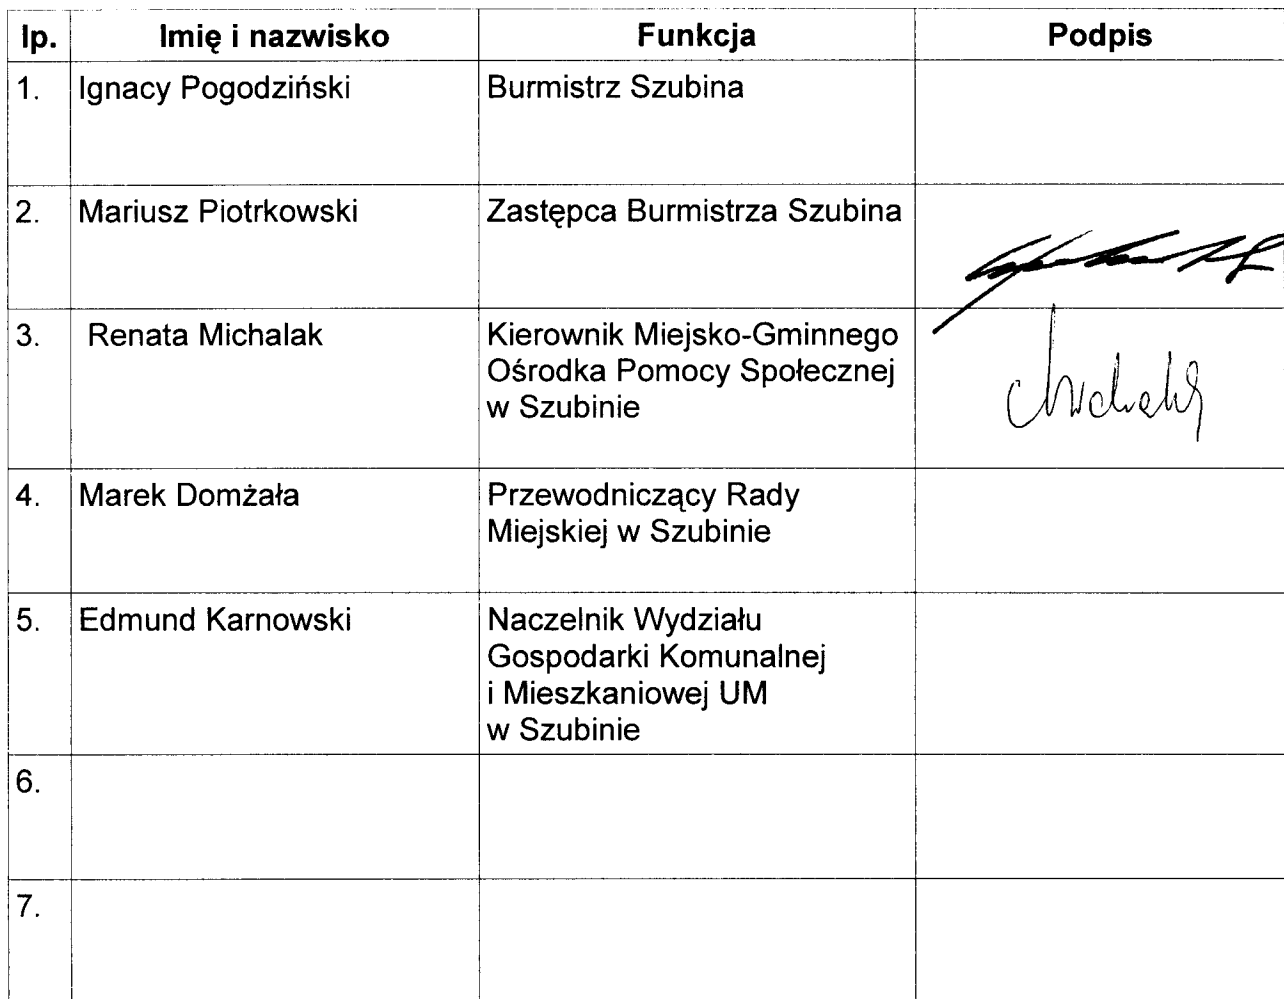 lp. Imię i nazwisko Funkcja Podpis
1. Ignacy Pogodziński Burmistrz Szubina
2. Mariusz Piotrkowski Zastępca Burmistrza Szubina
3. Renata Michalak Kierownik Miejsko-Gminnego
Ośrodka Pomocy Społecznej
w Szubinie
4. Marek Domżała Przewodniczący Rady
Miejskiej w Szubinie
5. Edmund Karnowski Naczelnik Wydziału
Gospodarki Komunalnej
i Mieszkaniowej UM
w Szubinie
6.
7.